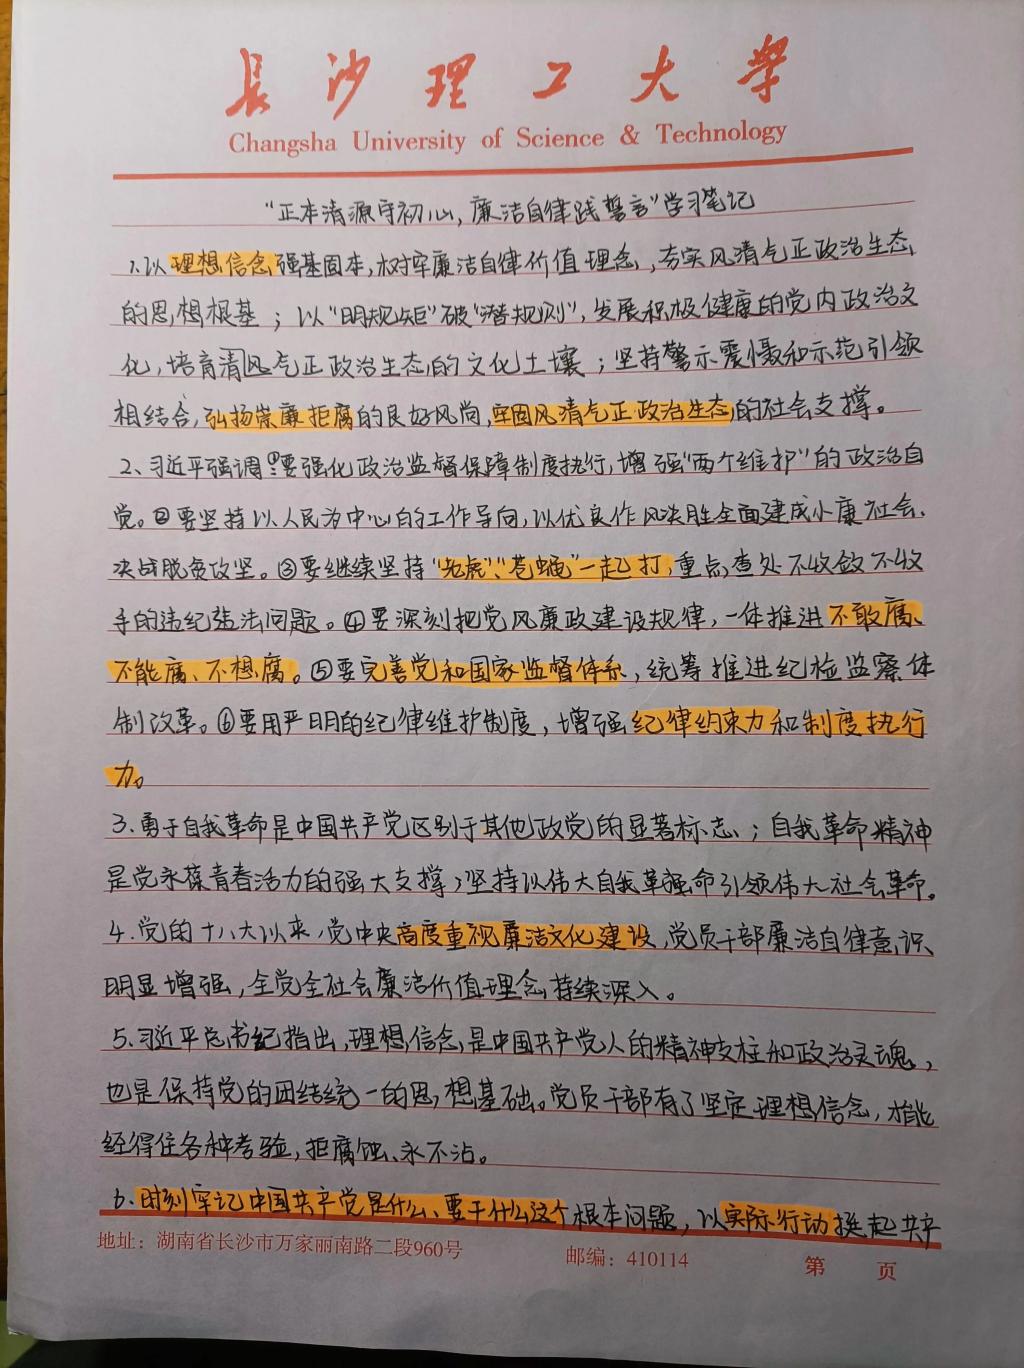 長沙理工大學
Changsha University of Science & Technology
“正本清源守初心,廉洁自律践誓言”学习笔记
1.以理想信念强基固本,树牢廉洁自律价值理念,夯实风清气正政治生态
的思想根基;以“明规矩”破“潜规则”,发展积极健康的党内政治文
化,培育清风气正政治生态的文化土壤;坚持警示震慑和示范引领
相结合,弘扬崇廉拒腐的良好风尚,牢固风清气正政治生态的社会支撑。
2、习近平强调①要强化政治监督保障制度执行,增强“两个维护”的政治自
觉。②要坚持以人民为中心的工作导向,以优良作风决胜全面建成小康社会、
决战脱贫攻坚。③要继续坚持“老虎”、“苍蝇”一起打,重点查处不收敛不收
手的违纪违法问题。④要深刻把党风廉政建设规律,一体推进不敢腐、
不能腐、不想腐。⑤要完善党和国家监督体系,统筹推进纪检监察体
制改革。⑥要用严明的纪律维护制度,增强纪律约束力和制度执行
力。
3.勇于自我革命是中国共产党区别于其他政党的显著标志;自我革命精神
是党永葆青春活力的强大支撑;坚持以伟大自我革命引领伟大社会革命。
4.党的十八大以来,党中央高度重视廉洁文化建设,党员干部廉洁自律意识
明显增强,全党全社会廉洁价值理念持续深入。
5.习近平总书纪指出,理想信念是中国共产党人的精神支柱和政治灵魂,
也是保持党的团结统一的思想基础。党员干部有了坚定理想信念,才能
经得住各种考验,拒腐蚀、永不沾。
6.时刻牢记中国共产党是什么、要干什么这个根本问题,以实际行动挺起共产
地址:湖南省长沙市万家丽南路二段960号 邮编:410114 第 页